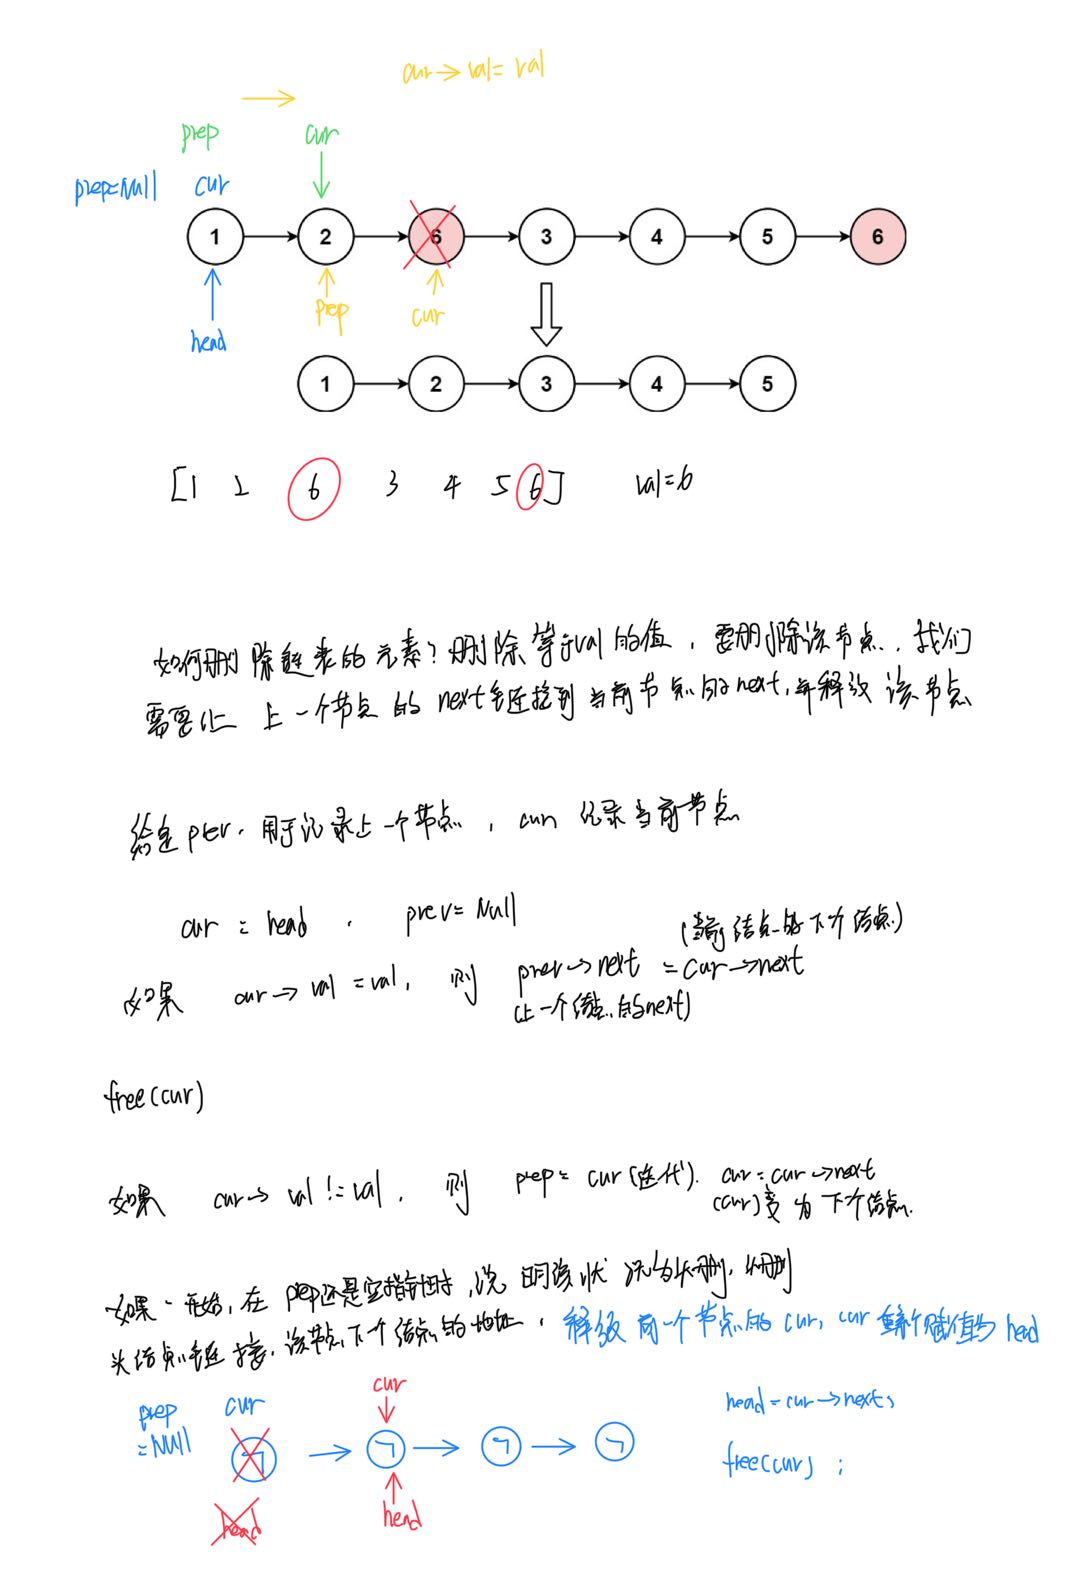 cur→val=val
prep cur
prep=Null cur
1 2 6 3 4 5 6
prep cur
head
1 2 3 4 5
[1 2 6 3 4 5 6] val=6
如何删除链表的元素?删除等于val的值，要删除该节点，我们
需要让上一个节点的next链接到当前节点的next，并释放该节点
给定prev，用于记录上一个节点，cur记录当前节点
cur = head , prev = Null
(当前结点的下个结点)
如果 cur→val = val, 则 prev→next = cur→next
(上一个结点的next)
free(cur)
如果 cur→val != val, 则 prep = cur(迭代). cur = cur→next
(cur)变为下个结点.
如果一开始，在prep还是空指针时，说明该状况为头删，头删
头结点链接，该节点下个结点的地址，释放前一个节点的cur, cur重新赋值为head
cur
prep cur head = cur→next;
=Null 7 7 7 7
free(cur) ;
head head